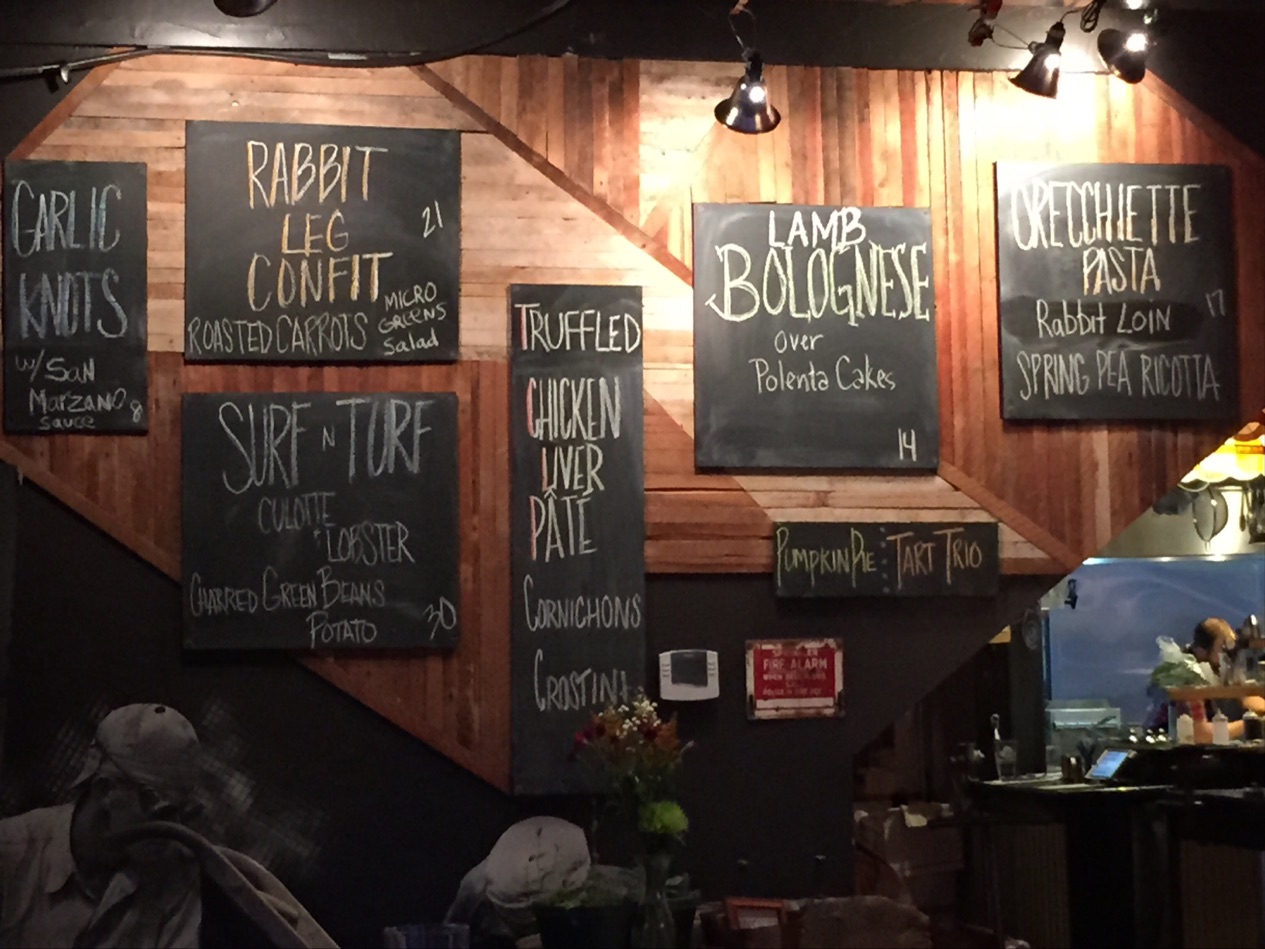 GARLIC
KNOTS
w/ SAN
MARZANO 8
sauce
RABBIT
LEG 21
CONFIT
MICRO
GREENS
Salad
ROASTED CARROTS
SURF N TURF
CULOTTE
+ LOBSTER
CHARRED GREEN BEANS
POTATO 30
TRUFFLED
CHICKEN
LIVER
PÂTÉ
CORNICHONS
CROSTINI
LAMB
BOLOGNESE
over
Polenta Cakes
14
ORECCHIETTE
PASTA
Rabbit LOIN 17
SPRING PEA RICOTTA
PUMPKIN PIE : TART TRIO
FIRE ALARM